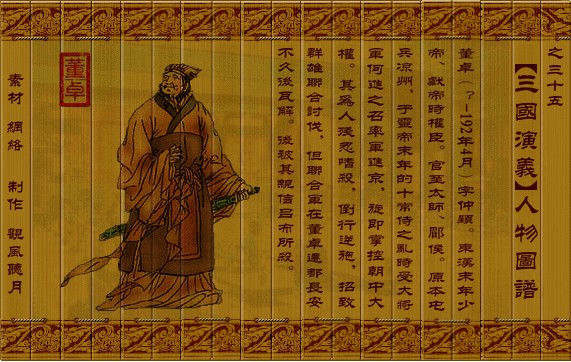 之三十五
【三國演義】人物圖譜
董卓（？—192年4月）字仲穎。東漢末年少
帝、獻帝時權臣。官至太師、郿侯。原本屯
兵凉州，于靈帝末年的十常侍之亂時受大將
軍何進之召率軍進京，旋即掌控朝中大
權。其爲人殘忍嗜殺，倒行逆施，招致
群雄聯合討伐，但聯合軍在董卓遷都長安
不久後瓦解。後被其親信呂布所殺。
董卓
素材 網絡 制作 觀風聽月